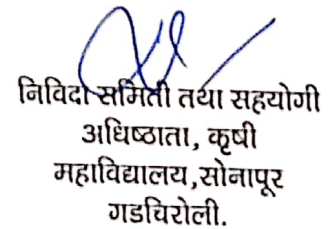 निविदा समिती तथा सहयोगी
अधिष्ठाता, कृषी
महाविद्यालय,सोनापूर
गडचिरोली.